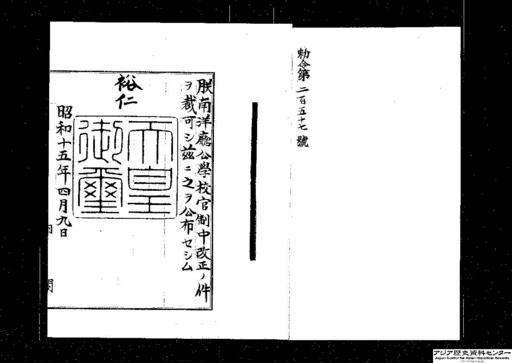 勅令第二百五十七號
朕南洋廳公學校官制中改正ノ件
ヲ裁可シ茲ニ之ヲ公布セシム
裕仁
天皇
御璽
昭和十五年四月九日
内閣
アジア歴史資料センター
Japan Center for Asian Historical Records